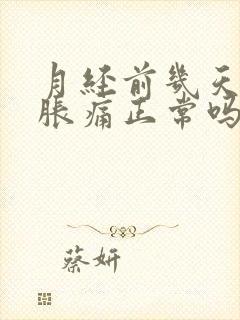 月经前几天
胀痛正常吗
蔡妍